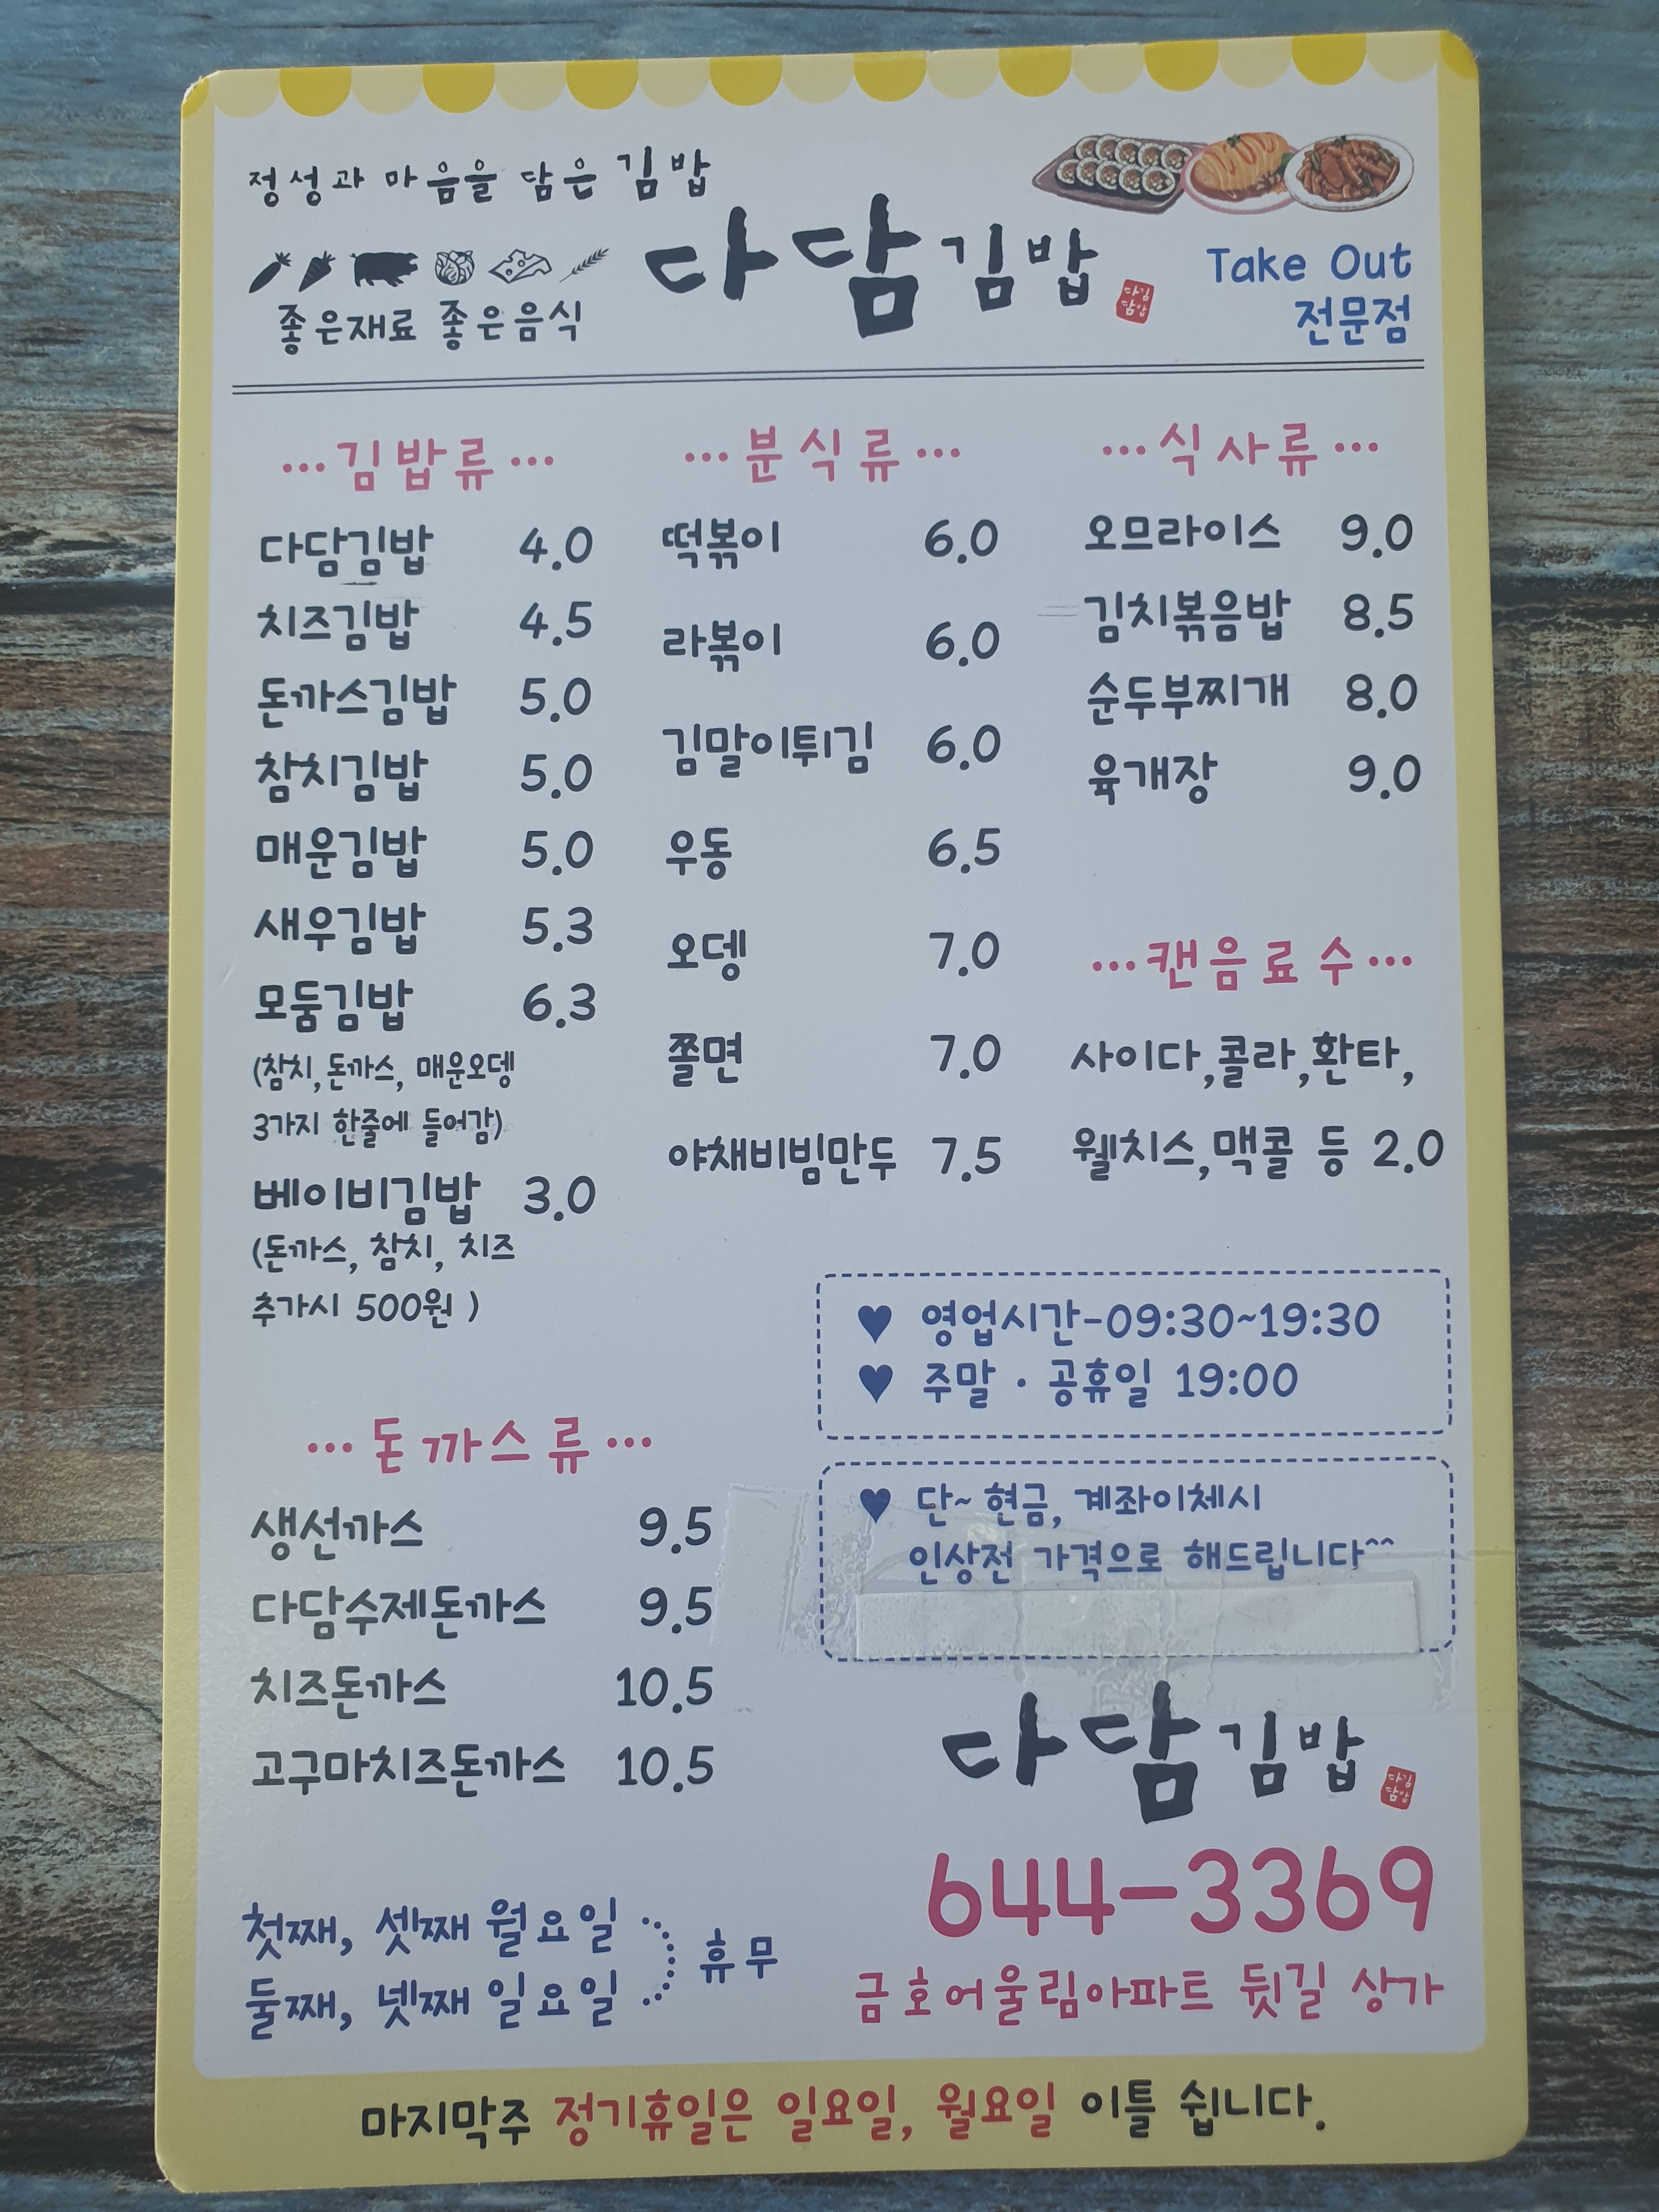 정성과 마음을 담은 김밥
다담김밥
다김
담밥
좋은재료 좋은음식
Take Out
전문점
···김밥류···
다담김밥 4.0
치즈김밥 4.5
돈까스김밥 5.0
참치김밥 5.0
매운김밥 5.0
새우김밥 5.3
모둠김밥 6.3
(참치, 돈까스, 매운오뎅
3가지 한줄에 들어감)
베이비김밥 3.0
(돈까스, 참치, 치즈
추가시 500원 )
···분식류···
떡볶이 6.0
라볶이 6.0
김말이튀김 6.0
우동 6.5
오뎅 7.0
쫄면 7.0
야채비빔만두 7.5
···식사류···
오므라이스 9.0
김치볶음밥 8.5
순두부찌개 8.0
육개장 9.0
···캔음료수···
사이다,콜라,환타,
웰치스,맥콜 등 2.0
♥ 영업시간-09:30~19:30
♥ 주말 · 공휴일 19:00
♥ 단~ 현금, 계좌이체시
인상전 가격으로 해드립니다^^
···돈까스류···
생선까스 9.5
다담수제돈까스 9.5
치즈돈까스 10.5
고구마치즈돈까스 10.5
첫째, 셋째 월요일
둘째, 넷째 일요일
휴무
다담김밥
다김
담밥
644-3369
금호어울림아파트 뒷길 상가
마지막주 정기휴일은 일요일, 월요일 이틀 쉽니다.